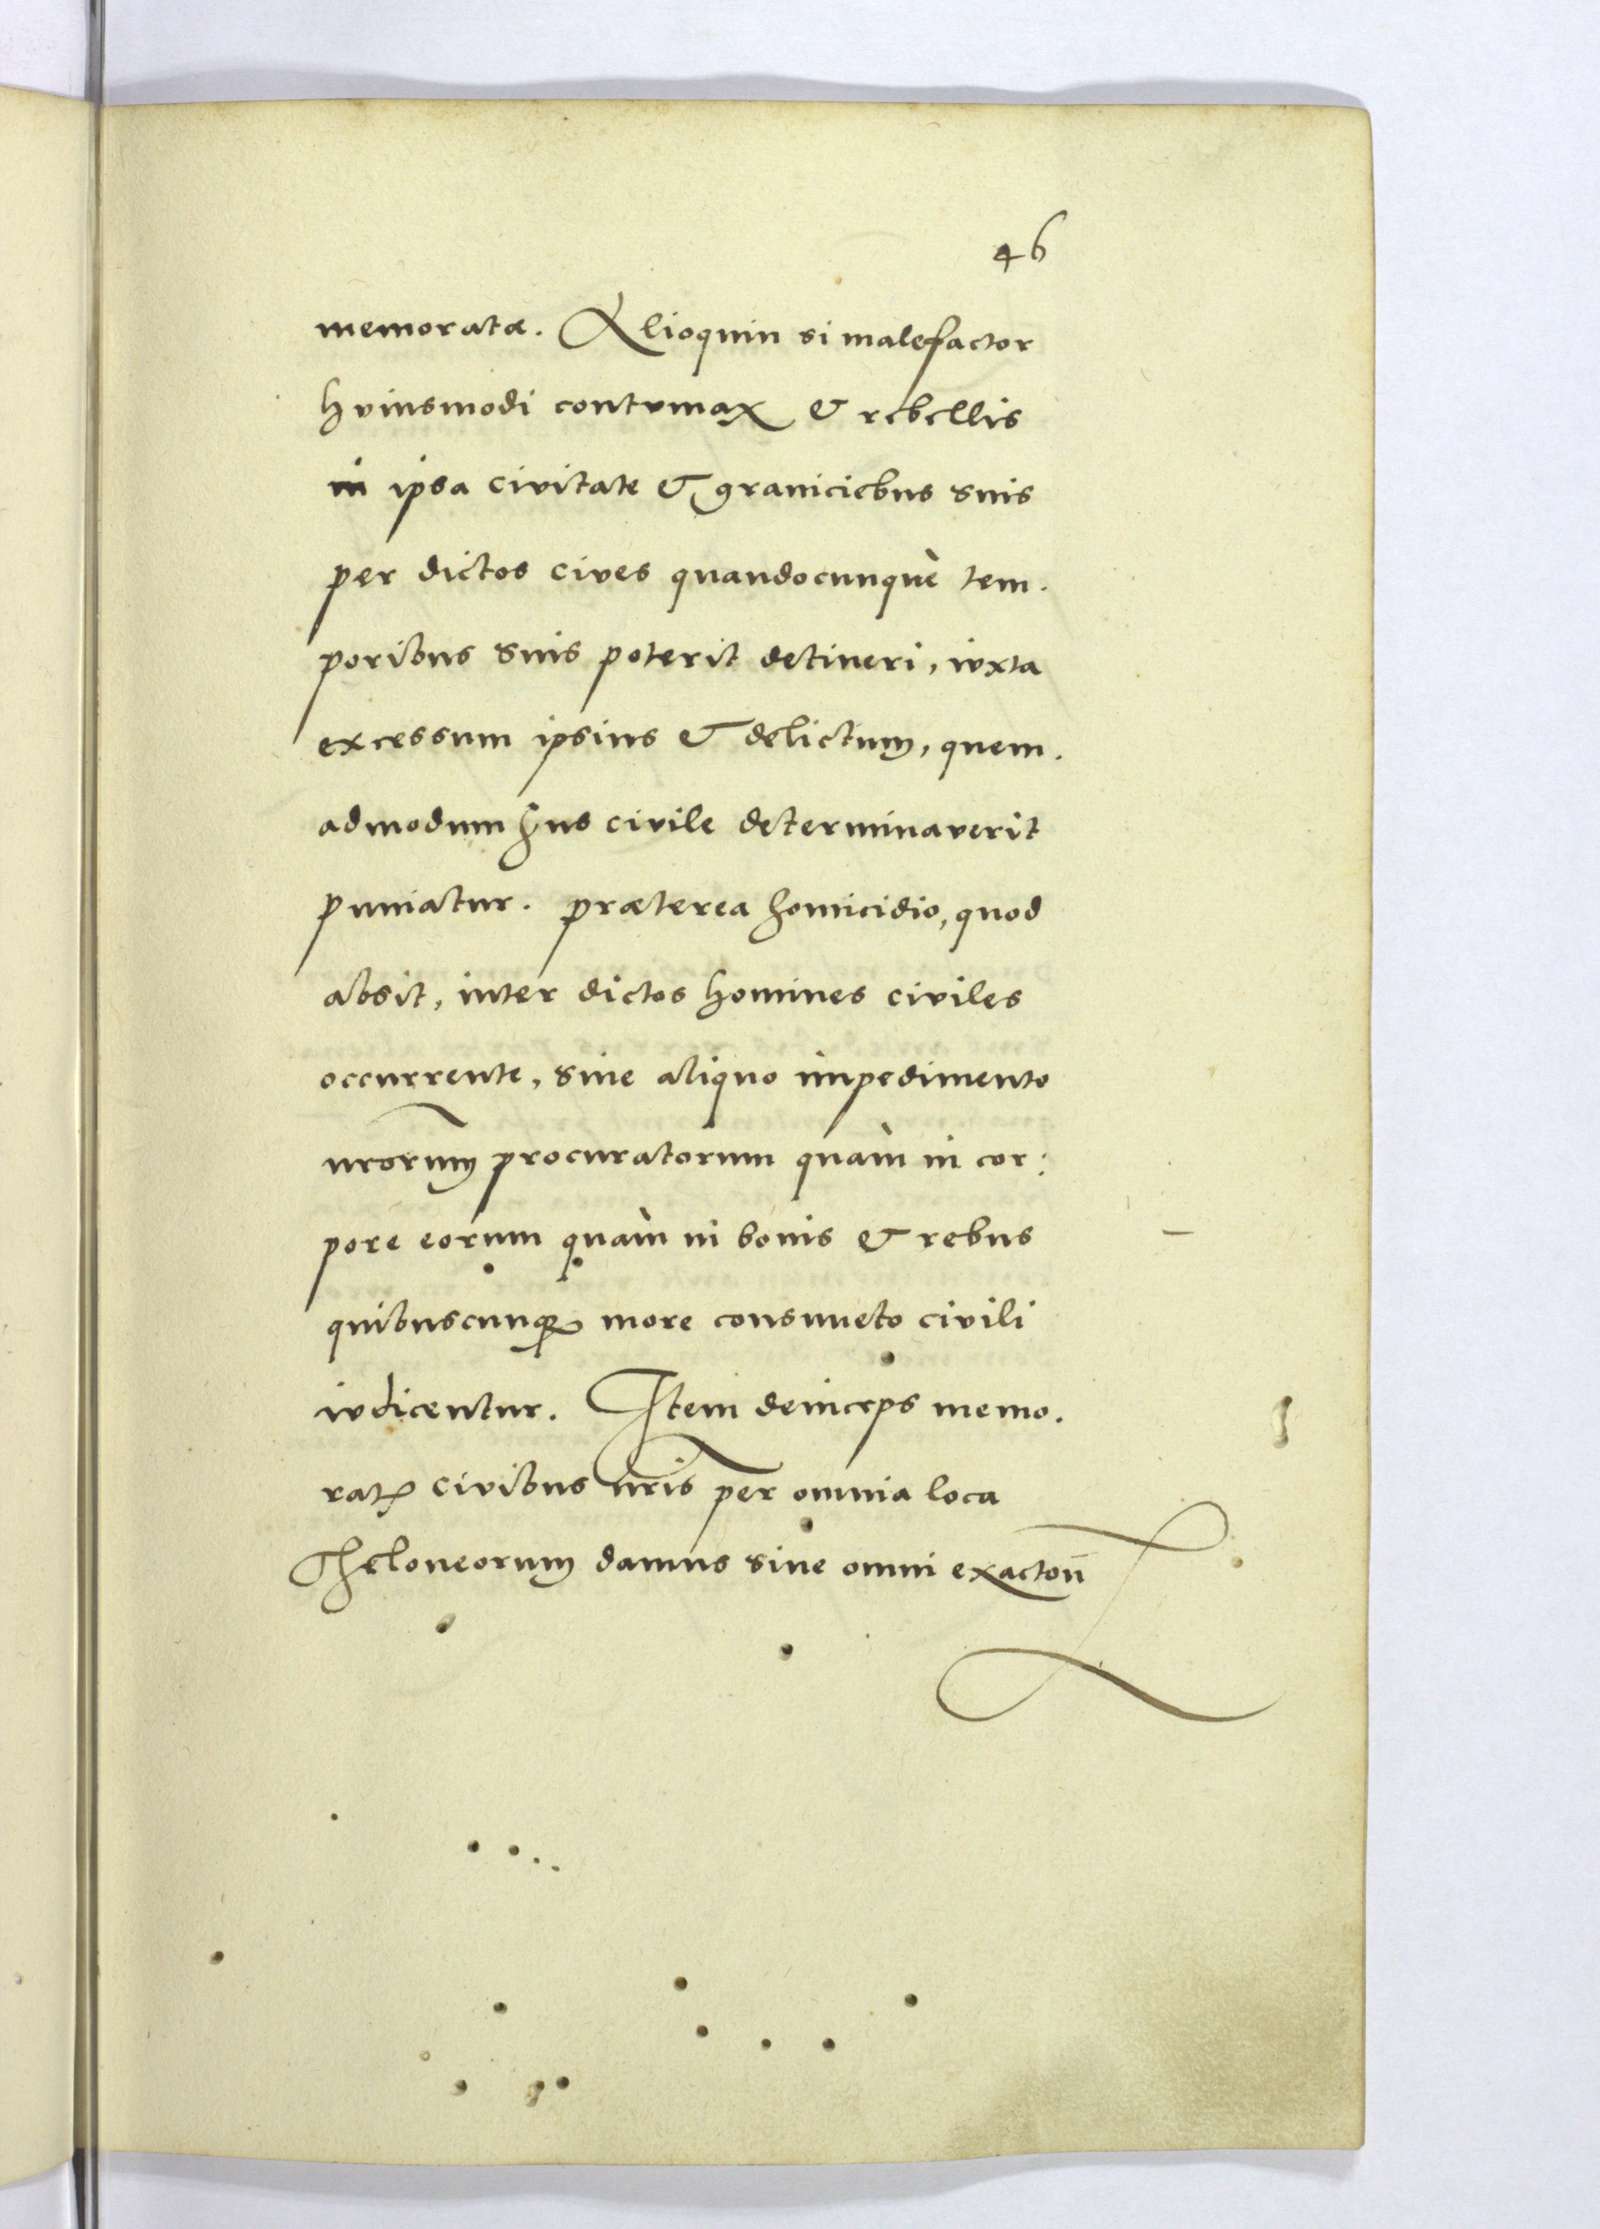 46
memoratæ. Alioquin si malefactor
huiusmodi contumax & rebellis
in ipsa civitate & graniciebus suis
per dictos cives quandocunquè tem.
poribus suis poterit detineri, iuxta
excessum ipsius & delictum, quem.
admodum Ius civile determinaverit
puniatur. præterea homicidio, quod
absit, inter dictos homines civiles
occurrente, sine aliquo impedimento
nr̃orum procuratorum quàm in cor:
pore eorum quàm in bonis & rebus
quibuscunqꝫ more consuueto civili
iudicentur. Item deinceps memo.
ratꝭ civibus nr̃is per omnia loca
Theloneorum damus sine omni exactoñ